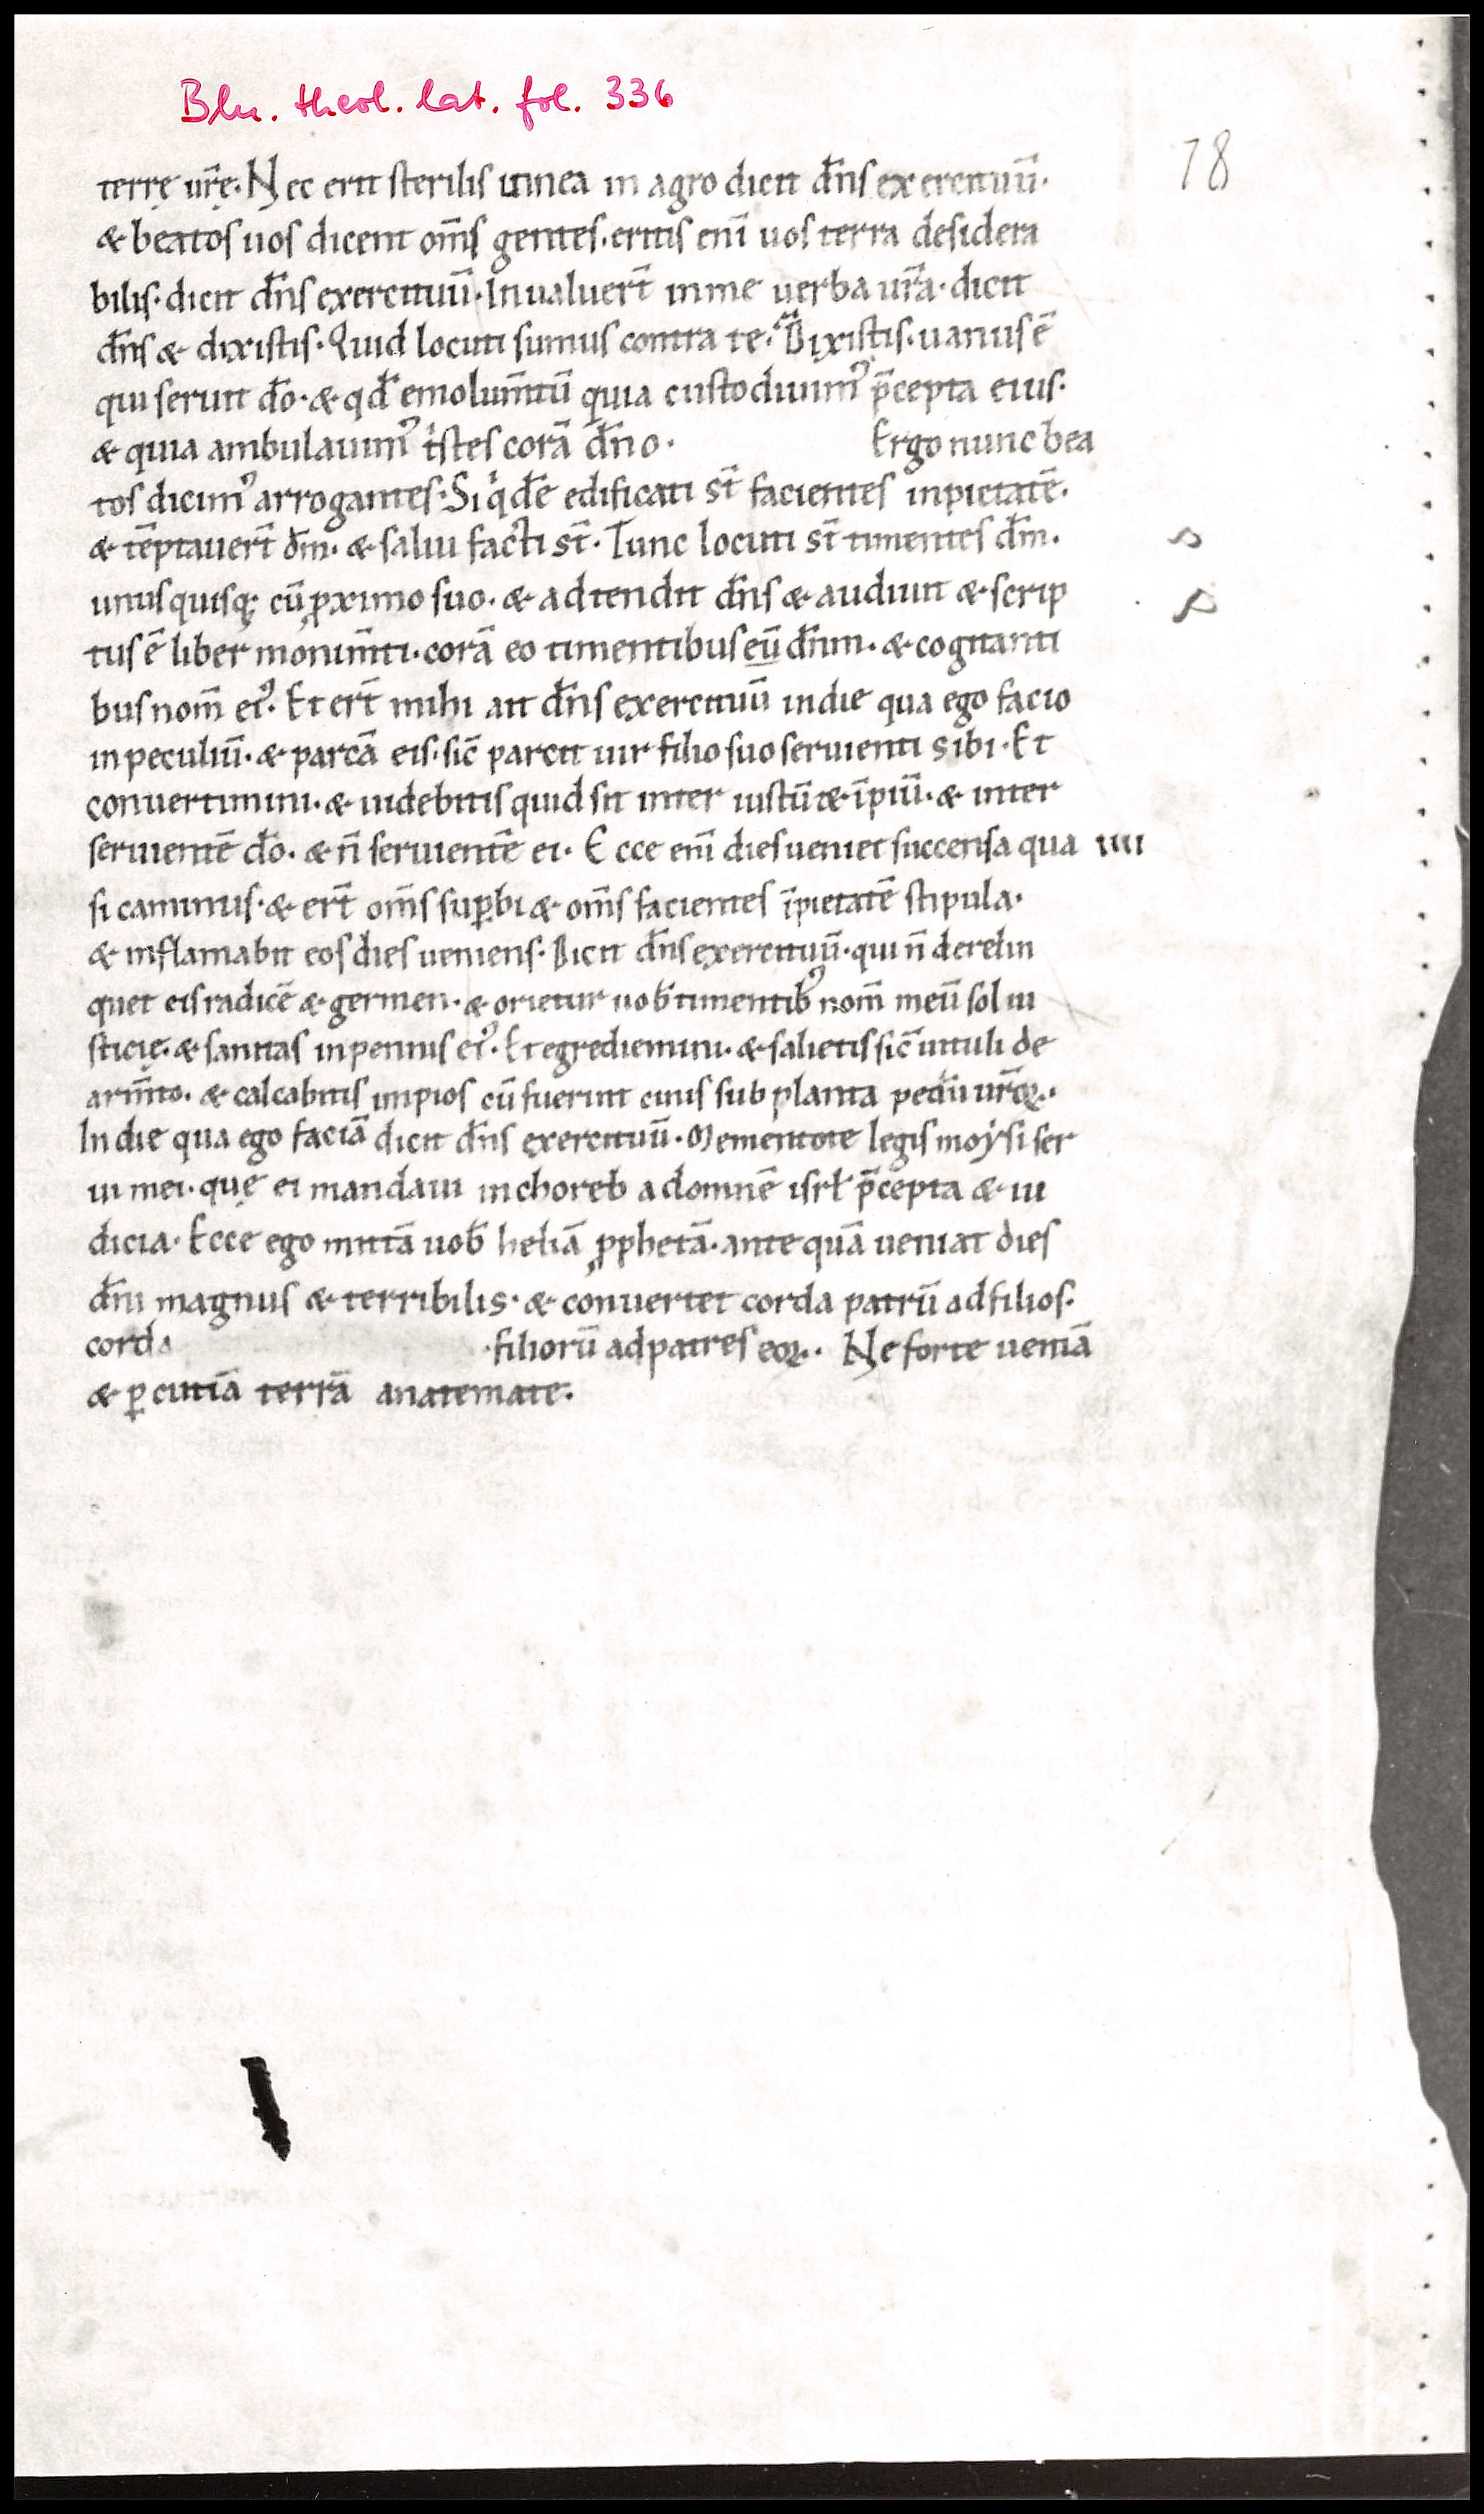 Bln. theol. lat. fol. 336
78
terrę ur̄ę. Nec erit sterilis uinea in agro dicit dn̄s exercituū.
& beatos uos dicent om̄s gentes. eritis eni͞ uos terra desidera
bilis. dicit dn̄s exercituū. Inualuer̄t inme uerba ur̄a. dicit
dn̄s & dixistis. Quid locuti sumus contra te. Dixistis. uanus ē
qui seruit do̅. & qđ emolum̄tū quia custodiuimꝰ p̄cepta eius.
& quia ambulauimꝰ tͥstes corā dn̄o. Ergo nunc bea
tos dicimꝰ arrogantes. Siqͥdē edificati st̄ facientes inpietatē.
& tēptauer̄t dm̄. & salui facti st̄. Tunc locuti st̄ timentes dm̄.
unusquisq; cū ꝓximo suo. & adtendit dn̄s & audiuit & scrip
tus ē liber monim̄ti. corā eo timentibus eū dn̄m. & cogitanti
bus nom̄ eiꝰ. Et er̄t mihi ait dn̄s exercituū indie qua ego facio
inpeculiū. & parcā eis. sic̄ parcit uir filio suo seruienti sibi. Et
conuertimini. & uidebitis quid sit inter iustū & īpiū. & inter
seruientē do̅. & n̄ seruientē ei. Ecce eni͞ dies ueniet succensa qua IIII
si caminus. & er̄t om̄s suꝑbi & om̄s facientes īpietatē stipula.
& inflamabit eos dies ueniens. Dicit dn̄s exercituū. qui n̄ derelin
quet eis radicē & germen. & orietur uob̄ timentibꝰ nom̄ meū sol iu
sticię. & sanitas inpennis eiꝰ. Et egrediemini. & salietis sic̄ uituli de
arm̄to. & calcabitis impios cū fuerint cinis sub planta pedū ur̄oꝝ.
In die qua ego faciā dicit dn̄s exercituū. Mementote legis moysi ser
ui mei. quę ei mandaui inchoreb adomnē isrł p̄cepta & iu
dicia. Ecce ego mittā uob̄ heliā ꝓphetā. ante quā ueniat dies
dn̄i magnus & terribilis. & conuertet corda patrū ad filios.
corda filiorū adpatres eoꝝ. Ne forte ueniā
& ꝑcutiā terrā anatemate.